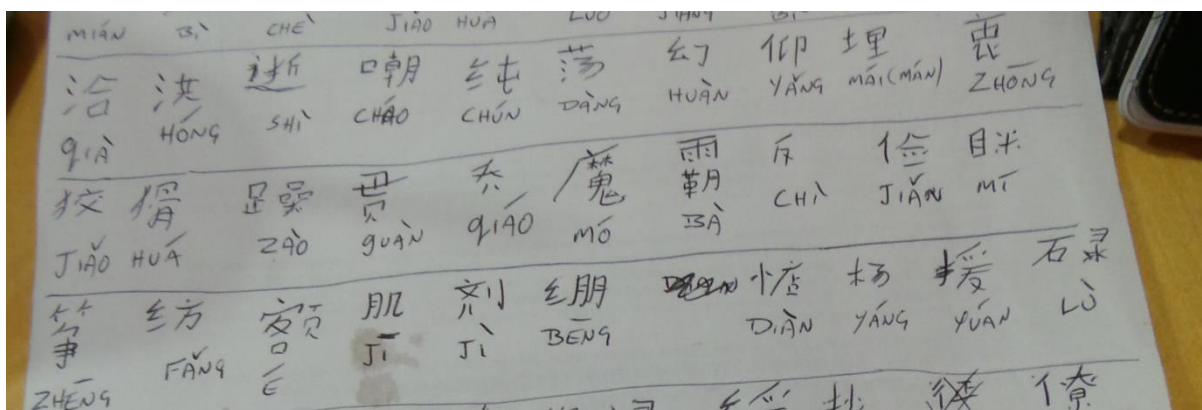 MIÁN BÌ CHÈ JIÀO HUA
洽 洪 逝 嘲 纯 荡 幻 仰 埋 衷
qIÀ HÓNG SHÌ CHÁO CHÚN DÀNG HUÀN YǍNG MÁI(MÁN) ZHŌNG
狡 猾 躁 贯 乔 魔 霸 斥 俭 眯
JIǍO HUÁ ZÀO gUÀN qIÁO MÓ BÀ CHÌ JIǍN MĪ
筝 纺 额 肌 剂 绷 惦 杨 援 碌
ZHĒNG FǍNG É JĪ JÌ BĒNG DIÀN YÁNG YUÁN LÙ
僚